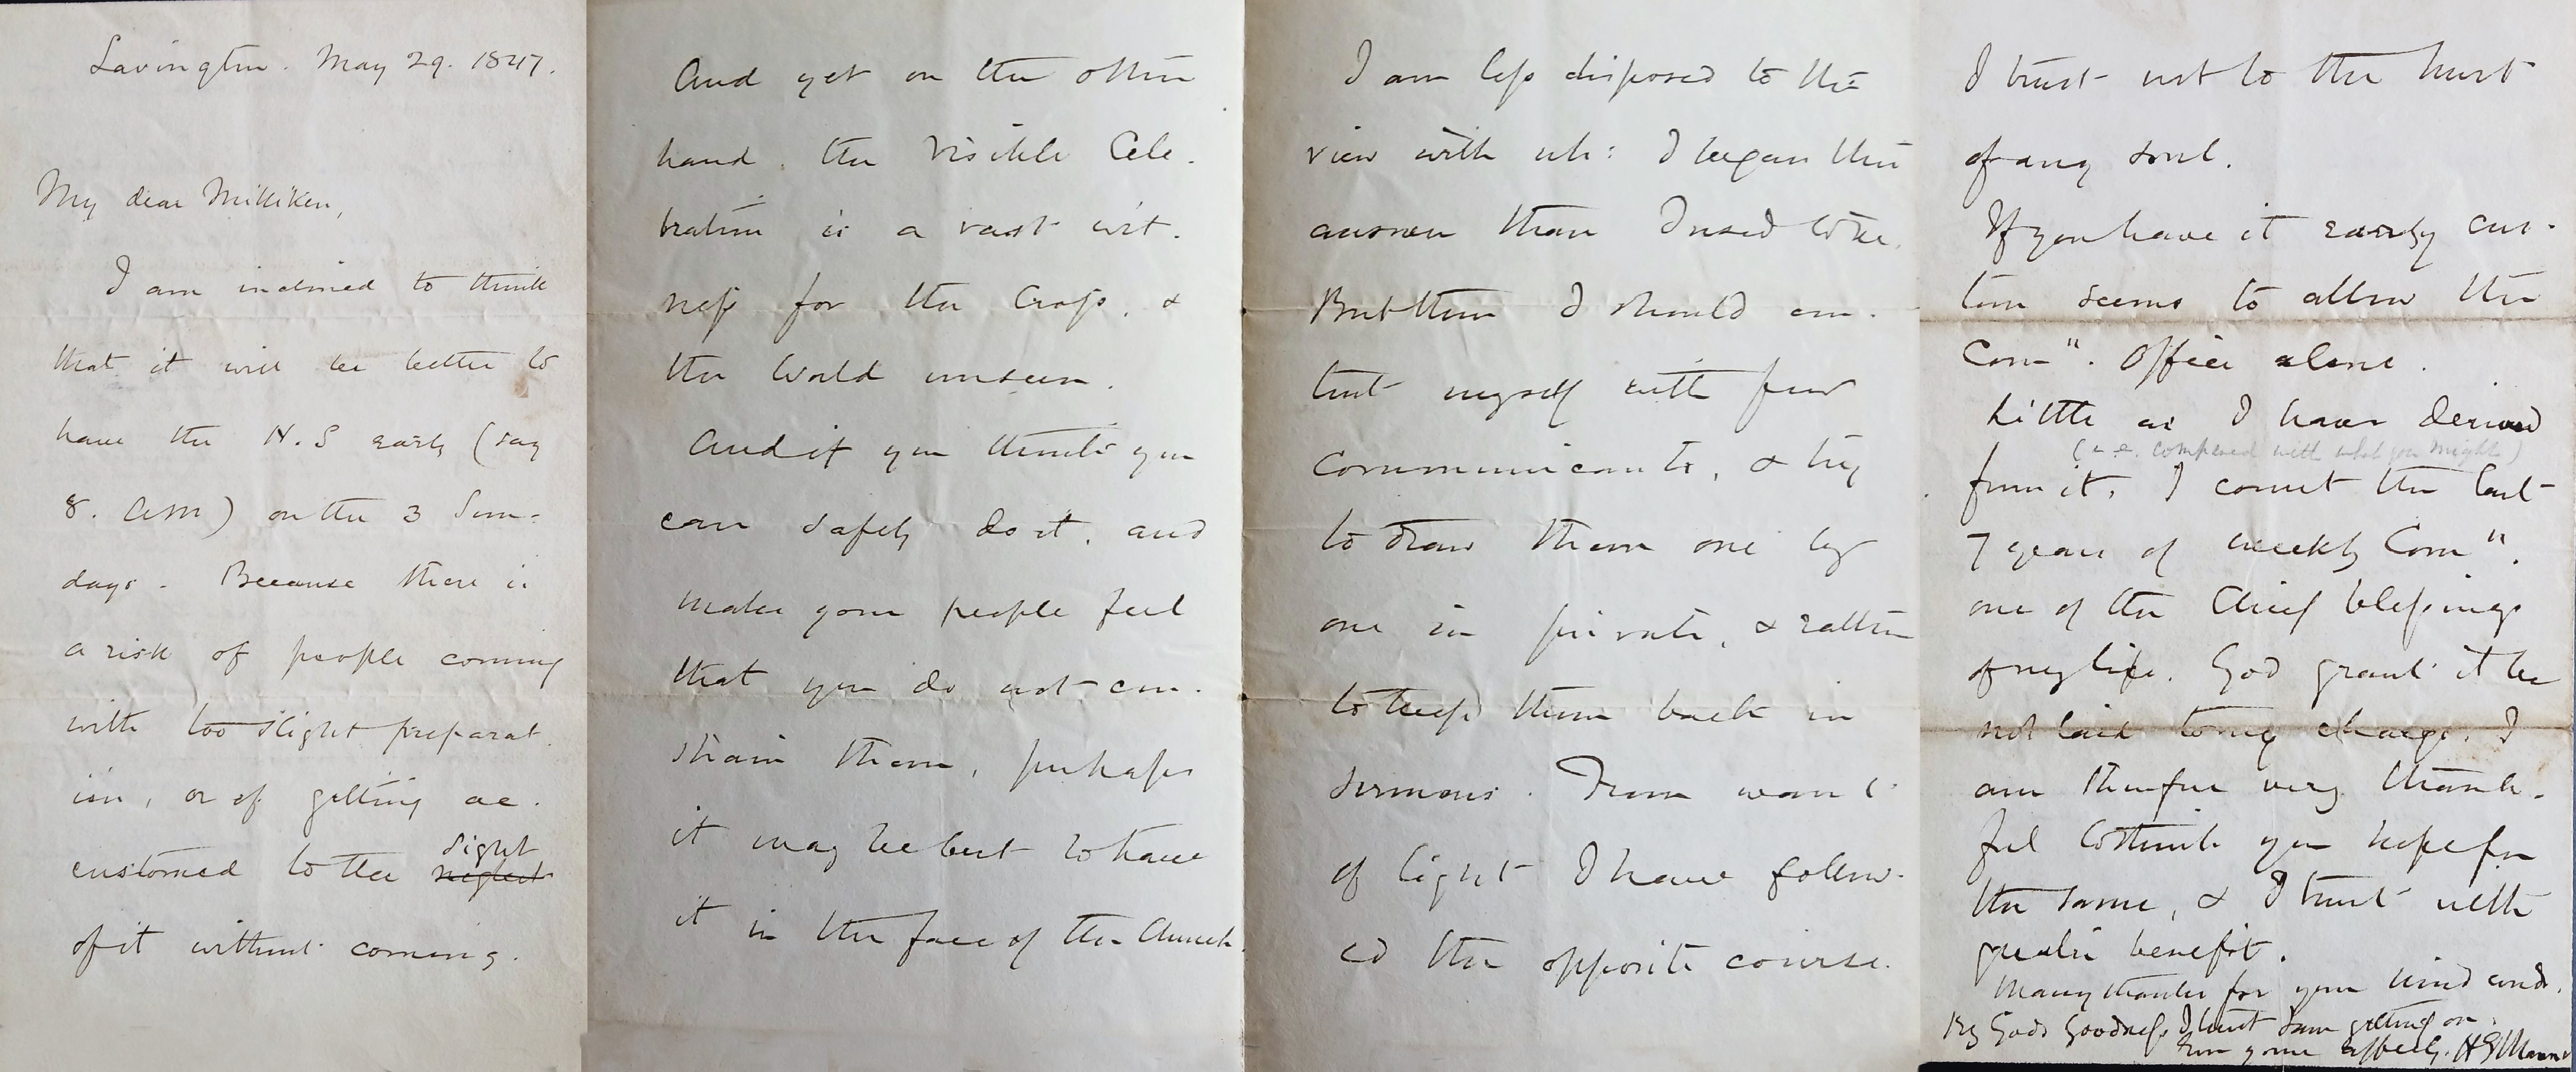 Lavington. May 29. 1847.
My dear Milliken,
I am inclined to think
that it will be better to
have the H.S early (say
8. am) on the 3 Sun-
days. Because there is
a risk of people coming
with too slight preparat
ion, or of getting ac.
customed to the neglect sight
of it without coming.
And yet on the other
hand, the visible Cele.
bration is a vast wit.
ness for the Cross, &
the World unseen.
And if you think you
can safely do it, and
make your people feel
that you do not con.
strain them, perhaps
it may be best to have
it in the face of the Church.
I am less disposed to the
view with wh: I began this
answer than I used to be.
But then I should con.
tent myself with few
Communicants, & try
to draw them one by
one in private, & rather
to keep them back in
sermons. From want
of light I have follow-
ed the opposite course.
I trust not to the hurt
of any soul.
If you have it early cus-
tom seems to allow the
Comn. Office alone.
Little as I have derived
(i.e. compared with what you might)
from it, I count the last
7 years of weekly Comn.
one of the chief blessings
of my life. God grant it be
not laid to my charge. I
am therefore very thank-
ful to think you hope for
the same, & I trust with
greater benefit.
Many thanks for your kind words.
By Gods Goodness I trust I am getting on.
Ever yours affectly. H E Mann